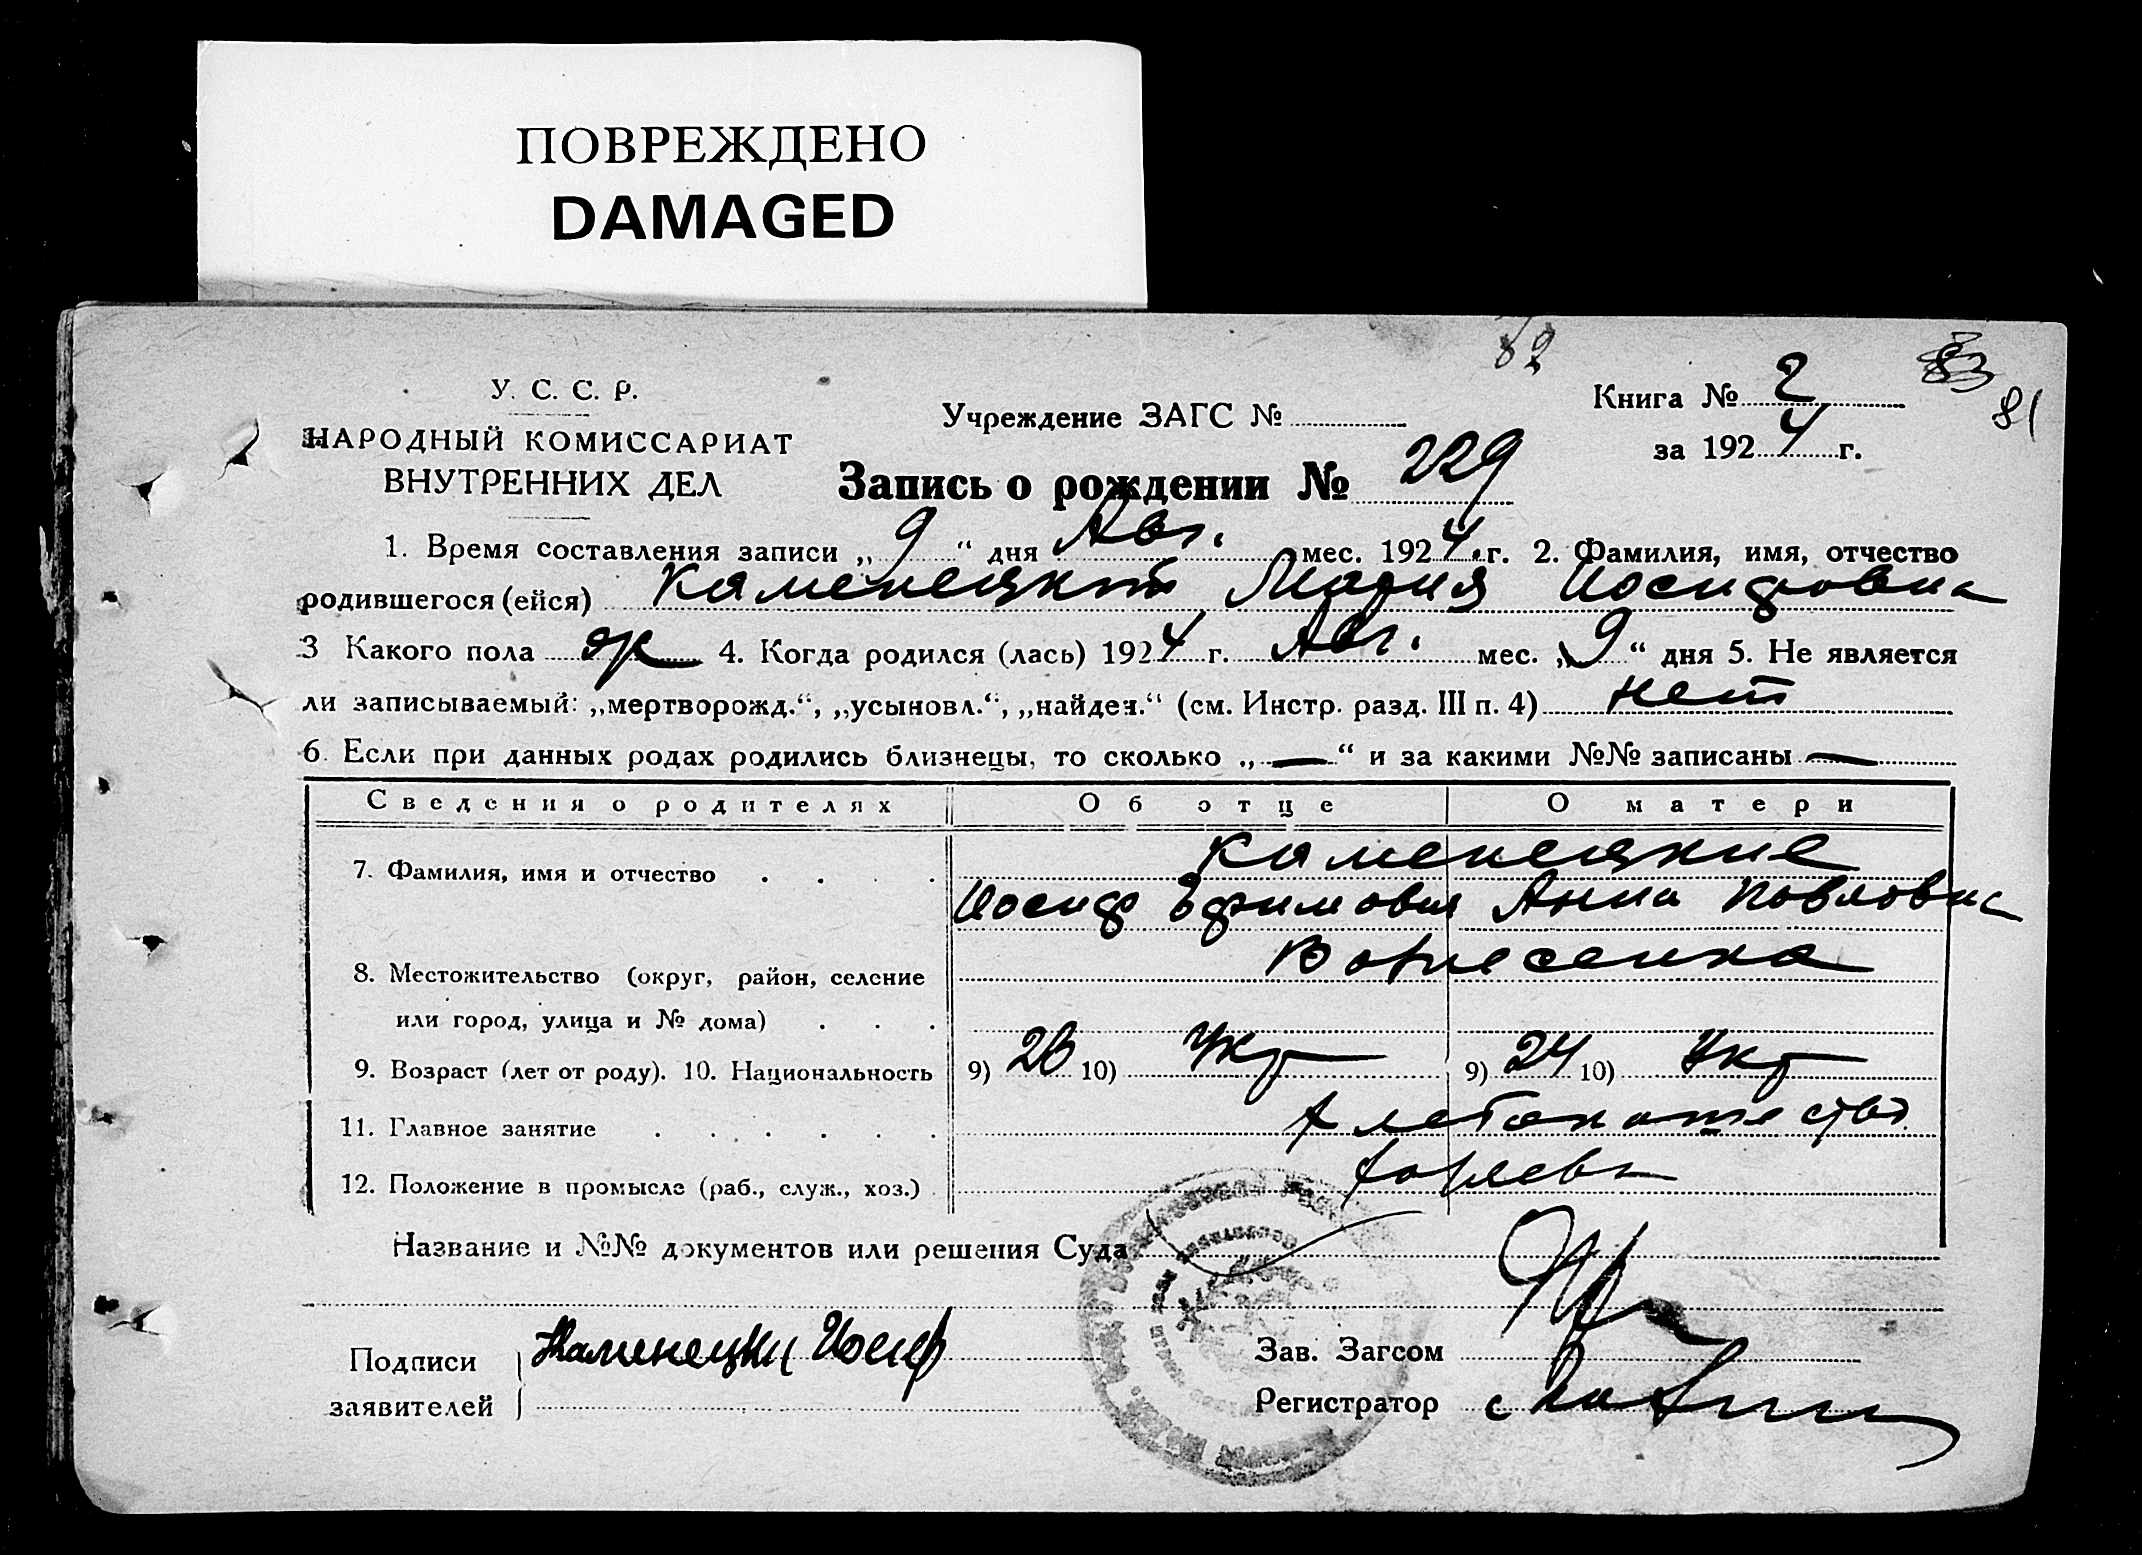 ПОВРЕЖДЕНО
DAMAGED
82
83
81
У. С. С. Р.
НАРОДНЫЙ КОМИССАРИАТ
ВНУТРЕННИХ ДЕЛ
Учреждение ЗАГС №
Книга № 2
за 1924 г.
Запись о рождении № 229
1. Время составления записи „9“ дня Авг. мес. 1924 г. 2. Фамилия, имя, отчество
родившегося (ейся) Каменецкий Мария Иосифовна
3 Какого пола ж 4. Когда родился (лась) 1924 г. Авг. мес. „9“ дня 5. Не является
ли записываемый: „мертворожд.“, „усыновл.“, „найден.“ (см. Инстр. разд. III п. 4) нет
6. Если при данных родах родились близнецы, то сколько „—“ и за какими №№ записаны —
Сведения о родителях Об отце О матери
7. Фамилия, имя и отчество Каменецкие
Иосиф Ефимович Анна Павловна
8. Местожительство (округ, район, селение Вознесенка
или город, улица и № дома)
9. Возраст (лет от роду). 10. Национальность 9) 26 10) Укр 9) 24 10) Укр
11. Главное занятие Хлебопашество
12. Положение в промысле (раб., служ., хоз.) хозяева
Название и №№ документов или решения Суда
Подписи заявителей Каменецки Иосиф
Зав. Загсом
Регистратор